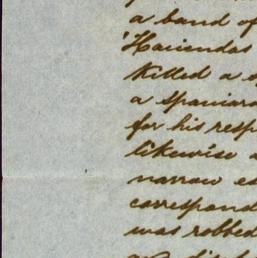 a band of
'Haciendas
killed a
a Spaniard
for his resp
likewise a
narrow es
correspond
was robbed